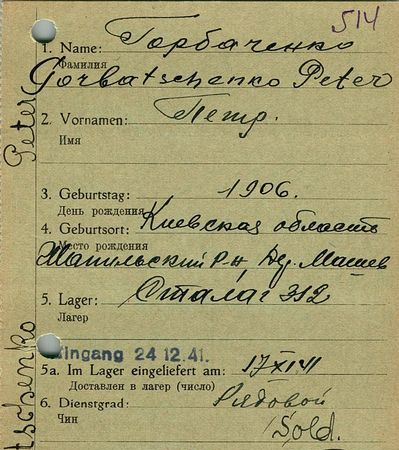 514
1. Name: Горбаченко
Фамилия
Gorbatschenko Peter
2. Vornamen: Петр.
Имя
3. Geburtstag: 1906.
День рождения
4. Geburtsort: Киевская область
Место рождения
р-н Дер. Машев
5. Lager: Сталаг 312
Лагер
Eingang 24 12. 41.
5a. Im Lager eingeliefert am: 17 XI 41
Доставлен в лагер (число)
6. Dienstgrad: Рядовой
Чин
Sold.
Peter
tschenko